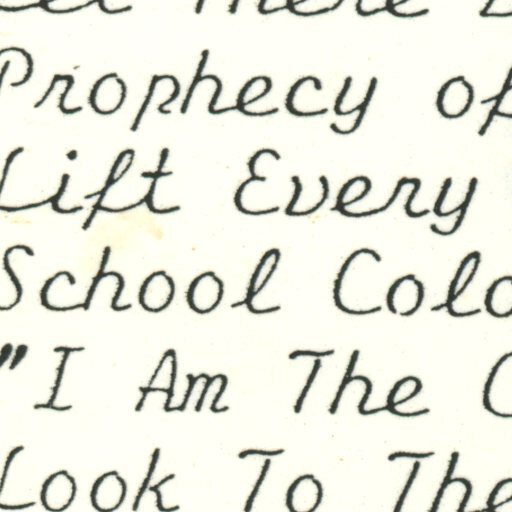 Prophecy of
Lift Every
School Colo
"I Am The
Look To The